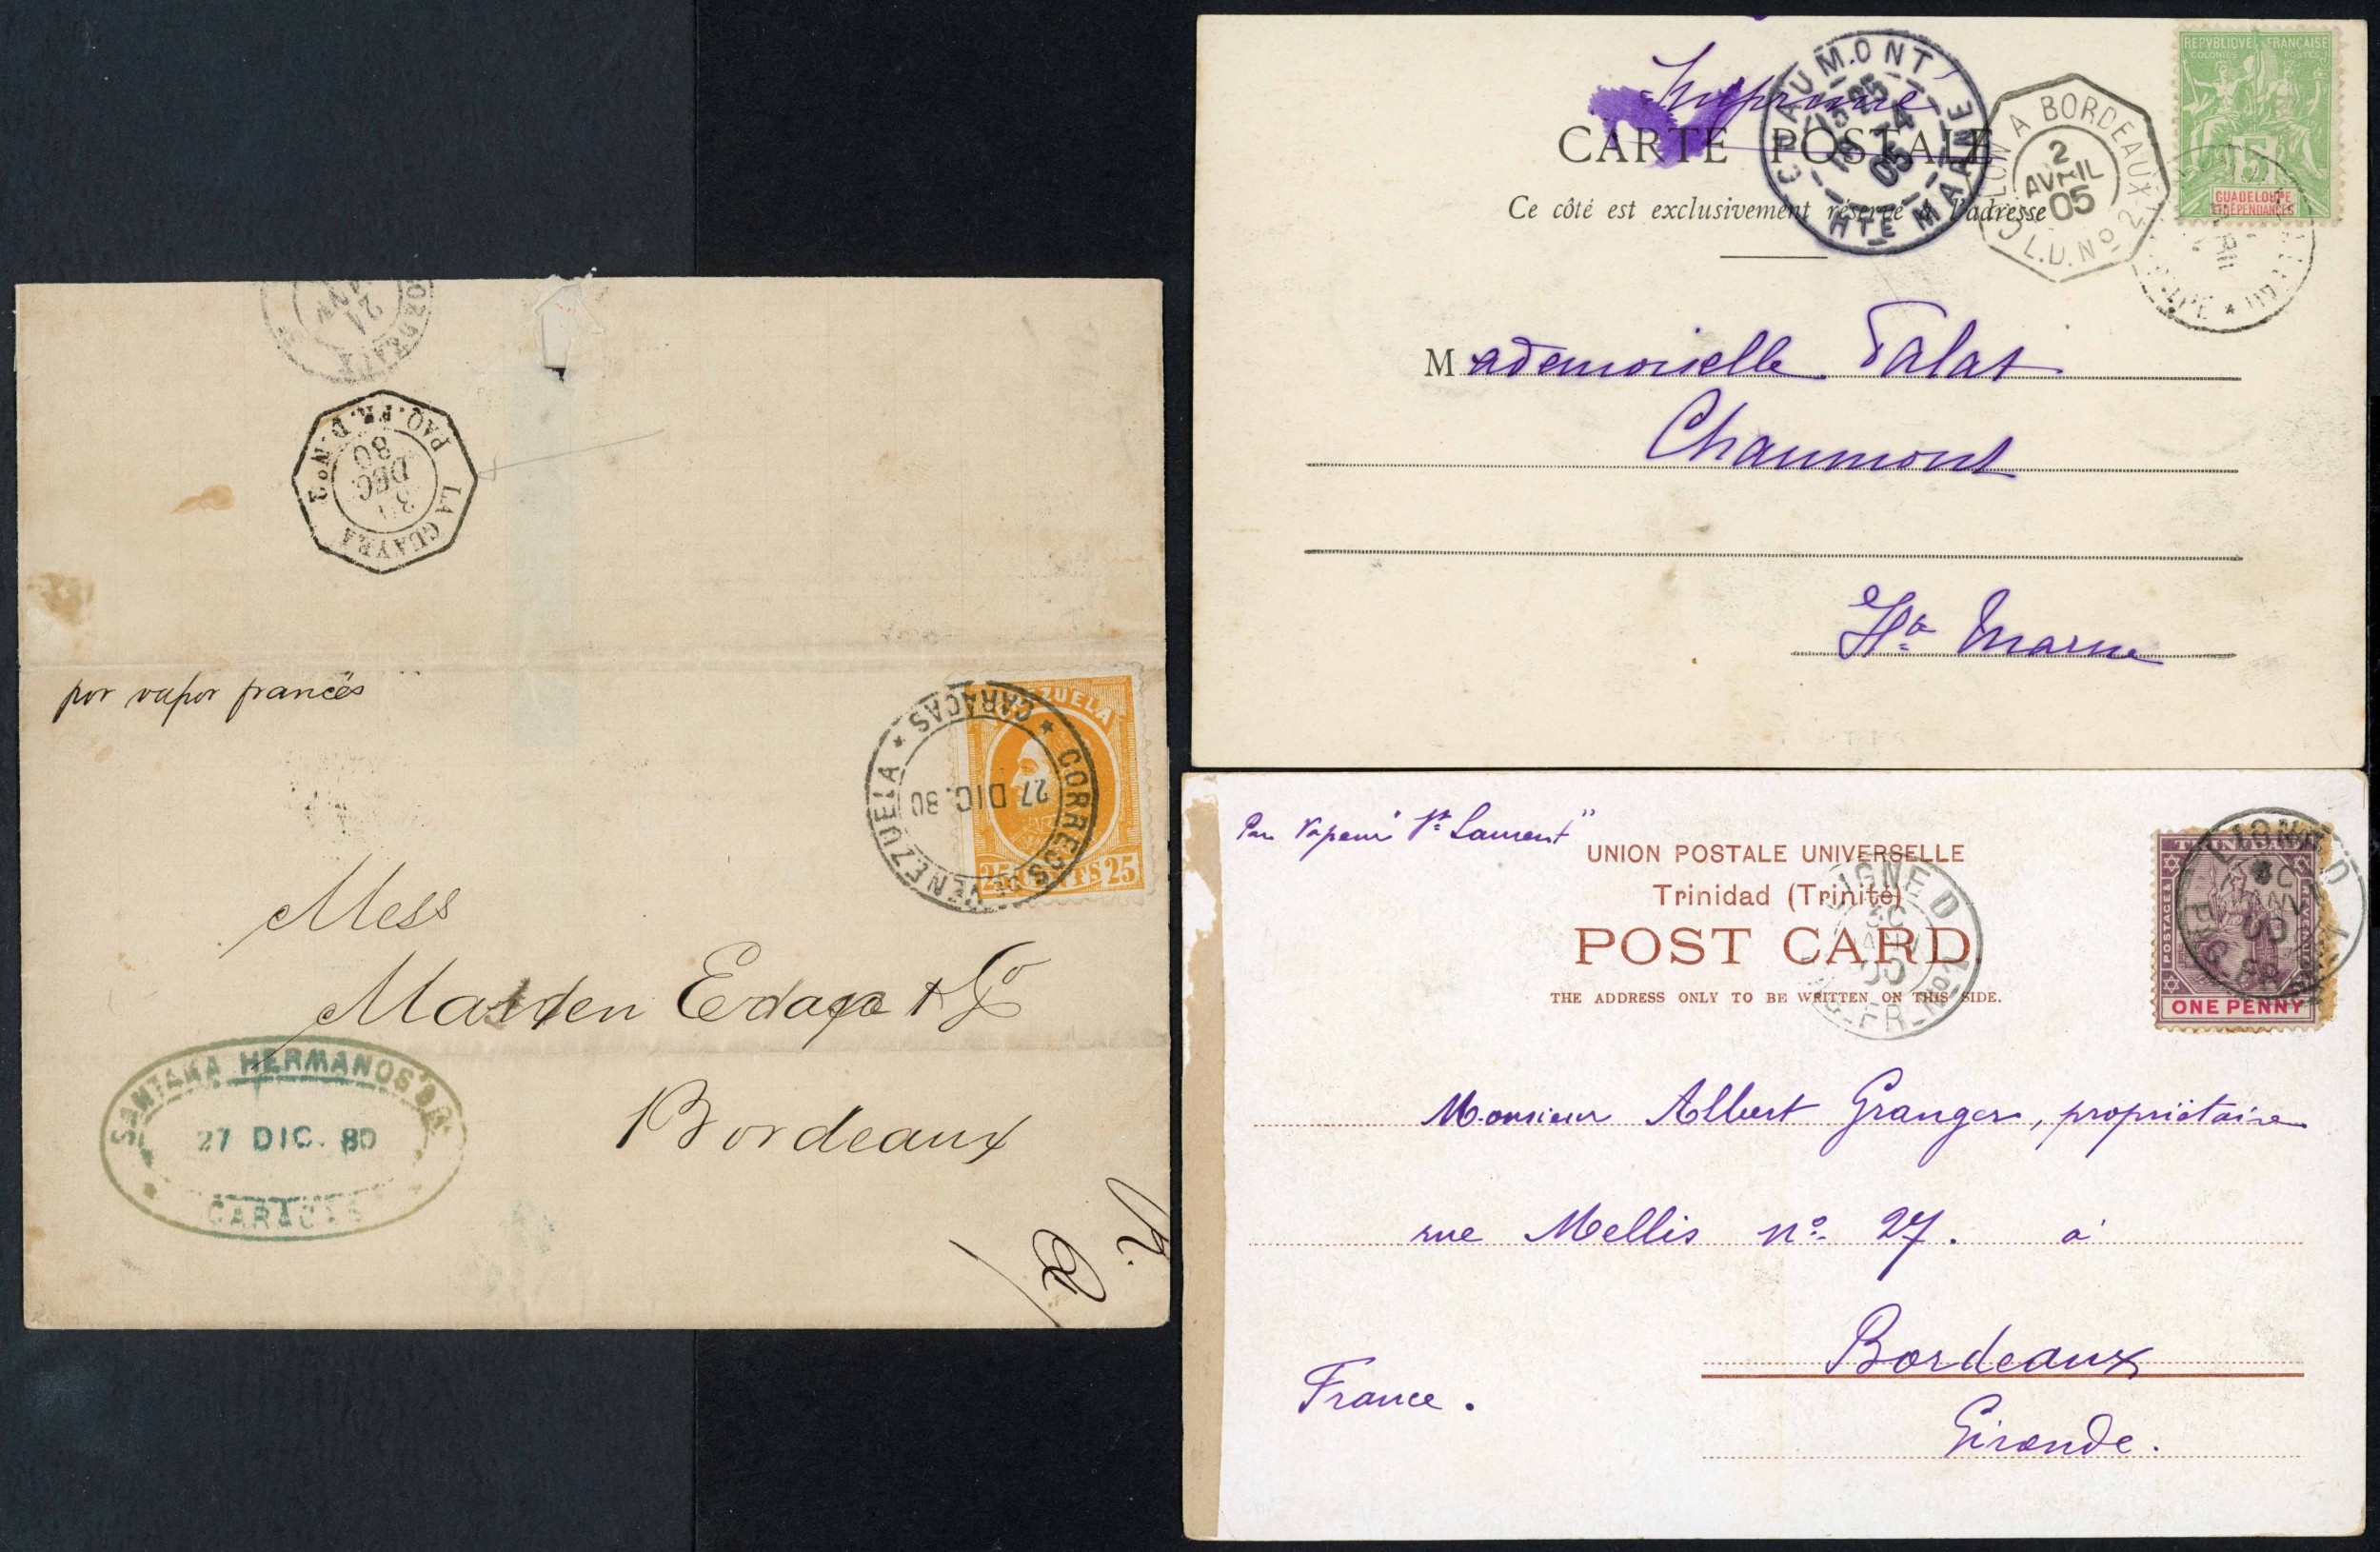 BORDEAUX
LA GUAYRA
PAQ. FR. D. No 3
31
DEC
80
por vapor francés
VENEZUELA
25 CENTS 25
CORREOS DE VENEZUELA
CARACAS
27 DIC. 80
Mess
Bordeaux
SANTANA HERMANOS
27 DIC. 80
CARACAS
Imprimé
CHAUMONT
25
-4
05
HTE MARNE
COLON A BORDEAUX
2
AVRIL
05
L.D. No 2
REPUBLIQUE FRANÇAISE
COLONIES POSTES
5
GUADELOUPE
ET DÉPENDANCES
CARTE POSTALE
Ce côté est exclusivement réservé à l'adresse
Mademoiselle Palat
Chaumont
Hte Marne
Par Vapeur "St Laurent"
UNION POSTALE UNIVERSELLE
Trinidad (Trinité)
POST CARD.
THE ADDRESS ONLY TO BE WRITTEN ON THIS SIDE.
LIGNE D
JANV
00
PAQ. FR. No 1
TRINIDAD
POSTAGE & REVENUE
ONE PENNY
LIGNE D
JANV
00
PAQ. FR. No 1
Monsieur Albert Granger, propriétaire
rue Mellis no 27. à
Bordeaux
France.
Gironde.